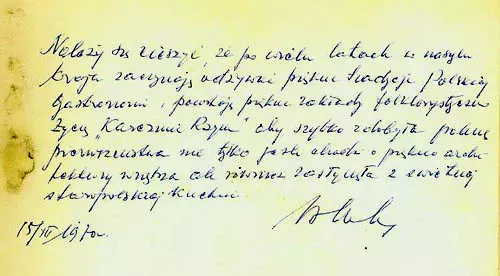 Należy się cieszyć, że po wielu latach w naszym
kraju zaczynają odżywać piękne tradycje Polskiej
Gastronomii i powstają piękne zakłady folklorystyczne
Życzę "Karczmie Rzym" aby szybko zdobyła palmę
pierwszeństwa nie tylko jeśli chodzi o piękno archi-
tektury wnętrza ale również zasłynęła z świetnej
staropolskiej kuchni.
15/III/1970